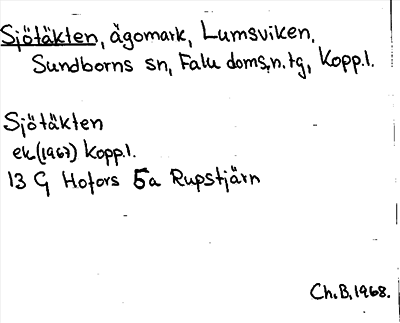 Sjötäkten, ägomark, Lumsviken,
Sundborns sn, Falu doms.n.tg, Kopp.l.
Sjötäkten
ek.(1967) Kopp.l.
13 G Hofors 5a Rupstjärn
Ch.B,1968.